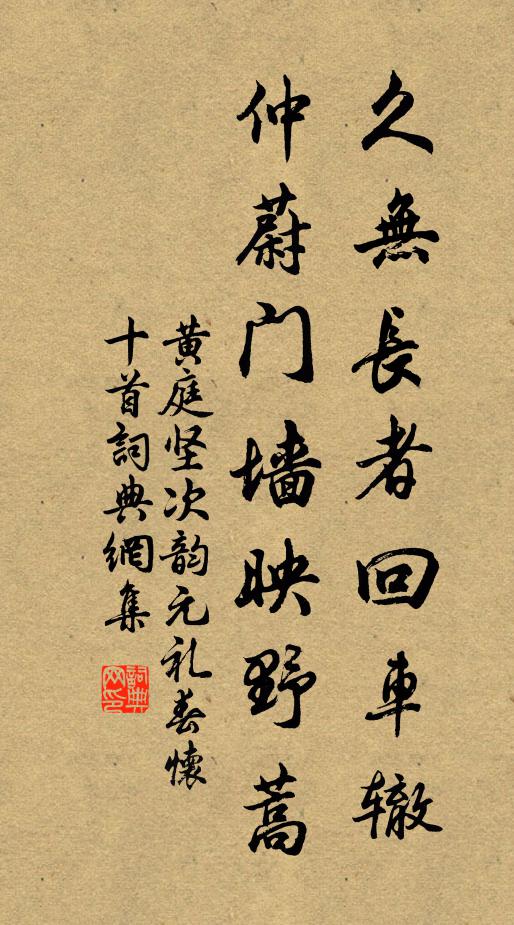 久無長者回車辙
仲蔚门墙映野蒿
黄庭坚次韵元礼春懷
十首詞典網集
詞典
网印